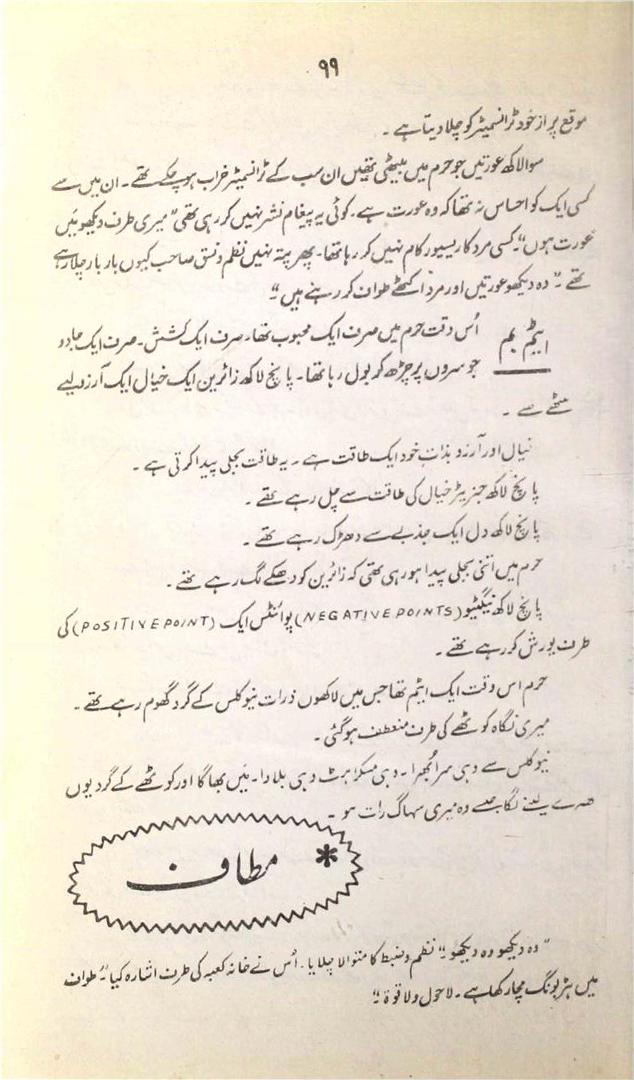 ۹۹
موقع پر از خود ٹرانسمیٹر کو چلا دیتا ہے ۔
سوا لاکھ عورتیں جو حرم میں بیٹھی تھیں ان سب کے ٹرانسمیٹر خراب ہو چکے تھے ۔ ان میں سے
کسی ایک کو احساس نہ تھا کہ وہ عورت ہے ۔ کوئی یہ پیغام نشر نہیں کر رہی تھی " میری طرف دیکھو میں
عورت ہوں " ۔ کسی مرد کا ریسیور کام نہیں کر رہا تھا ۔ پھر پتہ نہیں نظم و نسق صاحب کیوں بار بار چلا رہے
تھے ۔ " وہ دیکھو عورتیں اور مرد اکٹھے طواف کر رہے ہیں "
ایٹم بم
اُس وقت حرم میں صرف ایک محبوب تھا ۔ صرف ایک کشش ۔ صرف ایک جادو
جو سروں پر چڑھ کر بول رہا تھا ۔ پانچ لاکھ زائرین ایک خیال ایک آرزو لیے
بیٹھے تھے ۔
خیال اور آرزو بذات خود ایک طاقت ہے ۔ یہ طاقت بجلی پیدا کرتی ہے ۔
پانچ لاکھ جنریٹر خیال کی طاقت سے چل رہے تھے ۔
پانچ لاکھ دل ایک جذبے سے دھڑک رہے تھے ۔
حرم میں اتنی بجلی پیدا ہو رہی تھی کہ زائرین کو دھکے لگ رہے تھے ۔
پانچ لاکھ نیگٹیو (NEGATIVE POINTS) پوائنٹس ایک (POSITIVE POINT) کی
طرف یورش کر رہے تھے ۔
حرم اس وقت ایک ایٹم تھا جس میں لاکھوں ذرات نیوکلس کے گرد گھوم رہے تھے ۔
میری نگاہ کوٹھے کی طرف منعطف ہو گئی ۔
نیوکلس سے وہی سر اُبھرا ۔ وہی مسکراہٹ وہی بلاوا ۔ میں بھاگا اور کوٹھے کے گرد یوں
پھیرے لینے لگا جیسے وہ میری سہاگ رات ہو ۔
* مطاف
" وہ دیکھو وہ دیکھو " نظم و ضبط کا متوالا چلایا ۔ اُس نے خانہ کعبہ کی طرف اشارہ کیا " طواف
میں ہڑبونگ مچا رکھا ہے ۔ لاحول ولا قوة "